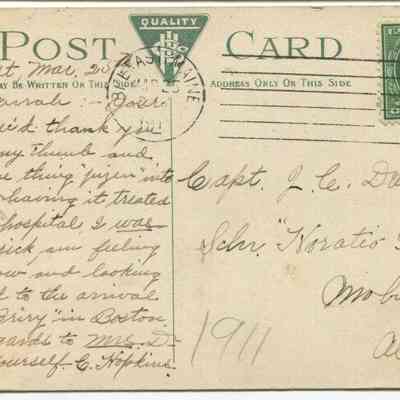 POST CARD
QUALITY
AY BE WRITTEN ON THIS SIDE
ADDRESS ONLY ON THIS SIDE
BELFAST MAINE
Mar. 2
thank you
my Thumb and
thing "
having it treated
hospital I was
sick, am feeling
ow and looking
d to the arrival
" in Boston
ards to Mrs. D-
ourself. C. Hopkins.
Capt. J. C. Du
Schr. "Horatio
Mob
1911